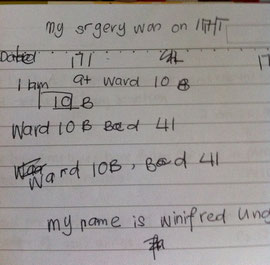 my srgery was on 17/7/1
Dated 171
I am at ward 10 B
10 B
Ward 10 B Bed 41
Ward 10B, Bed 41
my name is winifred